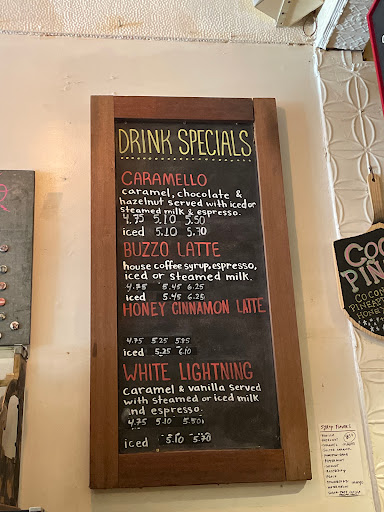 DRINK SPECIALS
CARAMELLO
caramel, chocolate &
hazelnut served with iced or
steamed milk & espresso.
4.75 5.10 5.50
iced 5.10 5.70
BUZZO LATTE
house coffee syrup, espresso,
iced or steamed milk.
4.75 5.45 6.25
iced 5.45 6.25
HONEY CINNAMON LATTE
4.75 5.25 5.95
iced 5.25 6.10
WHITE LIGHTNING
caramel & vanilla served
with steamed or iced milk
and espresso.
4.75 5.10 5.50
iced 5.10 5.70
COC
PIN
COCON
HONEY